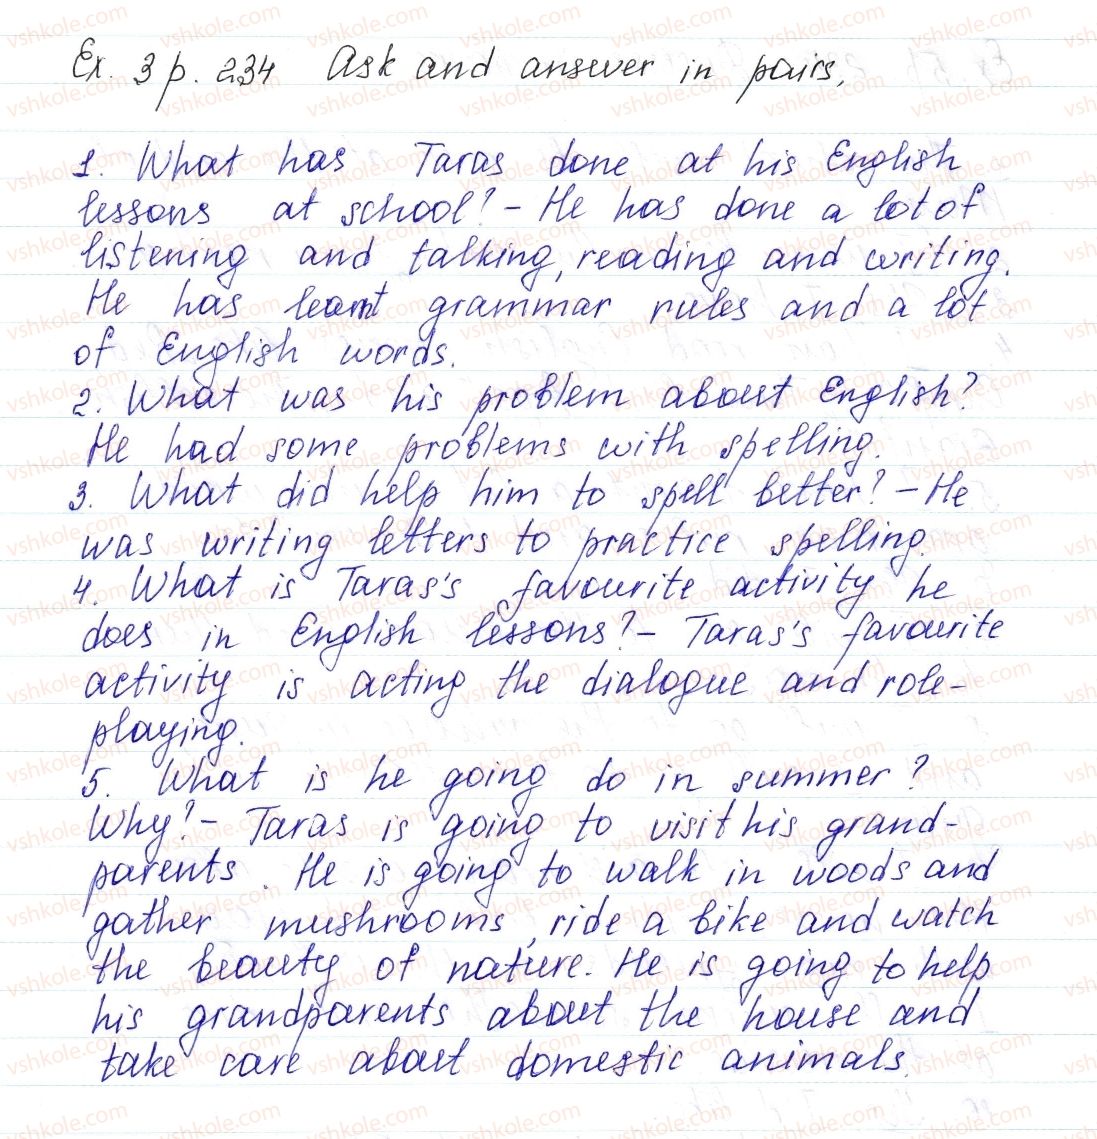 Ex. 3 p. 234 Ask and answer in pairs.
1. What has Taras done at his English
lessons at school? – He has done a lot of
listening and talking, reading and writing.
He has learnt grammar rules and a lot
of English words.
2. What was his problem about English?
He had some problems with spelling.
3. What did help him to spell better? – He
was writing letters to practice spelling.
4. What is Taras's favourite activity he
does in English lessons? – Taras's favourite
activity is acting the dialogue and role-
playing.
5. What is he going do in summer?
Why? – Taras is going to visit his grand-
parents. He is going to walk in woods and
gather mushrooms, ride a bike and watch
the beauty of nature. He is going to help
his grandparents about the house and
take care about domestic animals.
vshkole.com